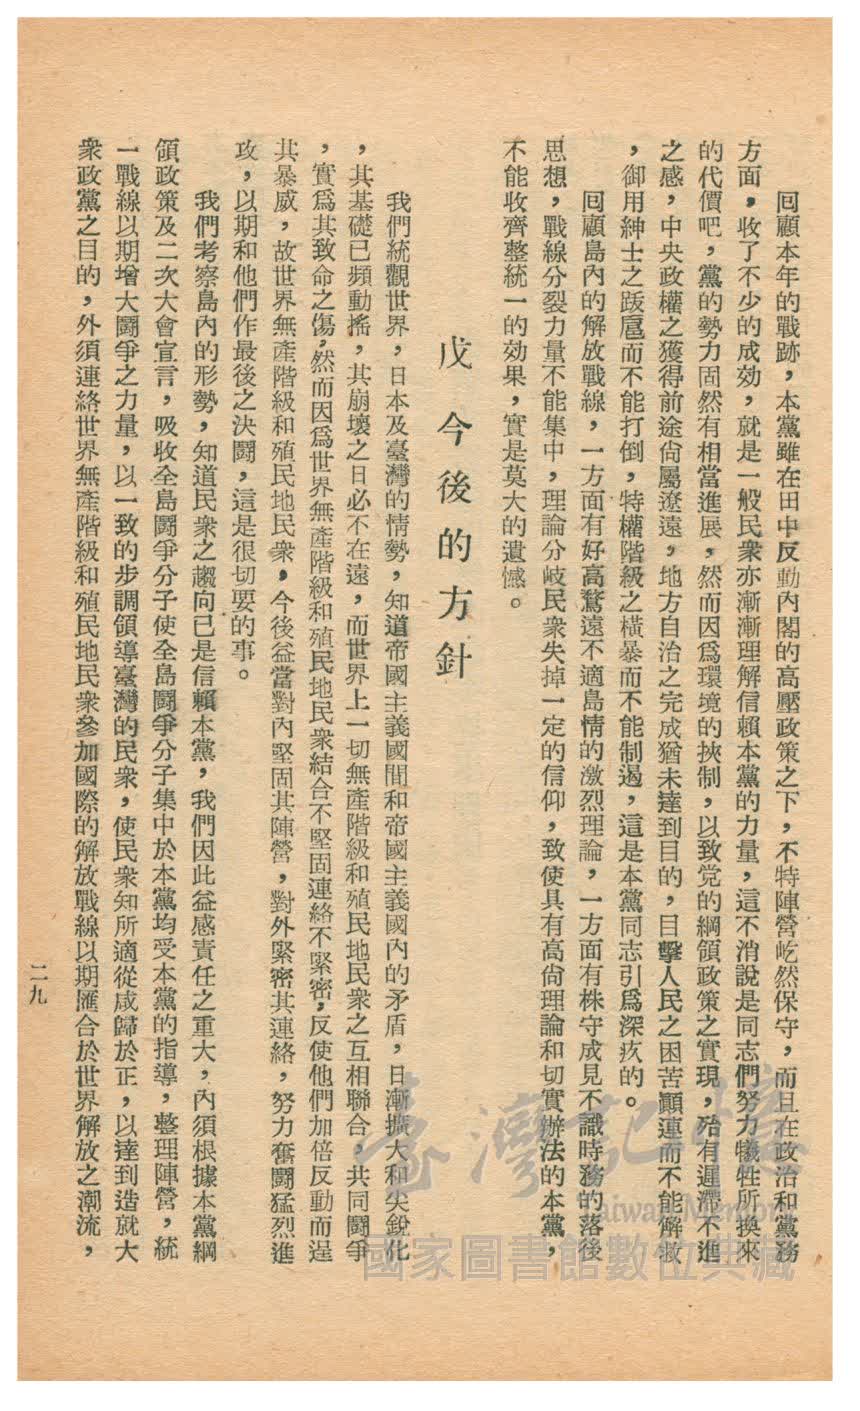 回顧本年的戰跡，本黨雖在田中反動內閣的高壓政策之下，不特陣營屹然保守，而且在政治和黨務
方面，收了不少的成効，就是一般民衆亦漸漸理解信賴本黨的力量，這不消說是同志們努力犧牲所換來
的代價吧，黨的勢力固然有相當進展，然而因爲環境的挾制，以致党的綱領政策之實現，殆有遲滯不進
之感，中央政權之獲得前途尙屬遼遠，地方自治之完成猶未達到目的，目擊人民之困苦顚連而不能解救
，御用紳士之跋扈而不能打倒，特權階級之橫暴而不能制遏，這是本黨同志引爲深疚的。
回顧島內的解放戰線，一方面有好高騖遠不適島情的激烈理論，一方面有株守成見不識時務的落後
思想，戰線分裂力量不能集中，理論分岐民衆失掉一定的信仰，致使具有高尙理論和切實辦法的本黨，
不能收齊整統一的効果，實是莫大的遺憾。
戊 今後的方針
我們統觀世界，日本及臺灣的情勢，知道帝國主義國間和帝國主義國內的矛盾，日漸擴大和尖銳化
，其基礎已頻動搖，其崩壞之日必不在遠，而世界上一切無產階級和殖民地民衆之互相聯合，共同鬪爭
，實爲其致命之傷，然而因爲世界無產階級和殖民地民衆結合不堅固連絡不緊密，反使他們加倍反動而逞
其暴威，故世界無產階級和殖民地民衆，今後益當對內堅固其陣營，對外緊密其連絡，努力奮鬪猛烈進
攻，以期和他們作最後之決鬪，這是很切要的事。
我們考察島內的形勢，知道民衆之趨向已是信賴本黨，我們因此益感責任之重大，內須根據本黨綱
領政策及二次大會宣言，吸收全島鬪爭分子使全島鬪爭分子集中於本黨均受本黨的指導，整理陣營，統
一戰線以期增大鬪爭之力量，以一致的步調領導臺灣的民衆，使民衆知所適從咸歸於正，以達到造就大
衆政黨之目的，外須連絡世界無產階級和殖民地民衆參加國際的解放戰線以期匯合於世界解放之潮流，
二九
臺灣記憶
Taiwan Memory
國家圖書館數位典藏